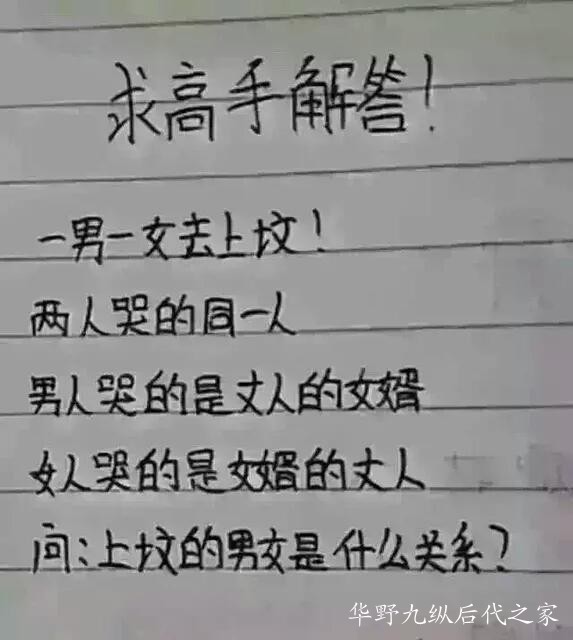 求高手解答!
一男一女去上坟!
两人哭的同一人
男人哭的是丈人的女婿
女人哭的是女婿的丈人
问:上坟的男女是什么关系?
华野九纵后代之家